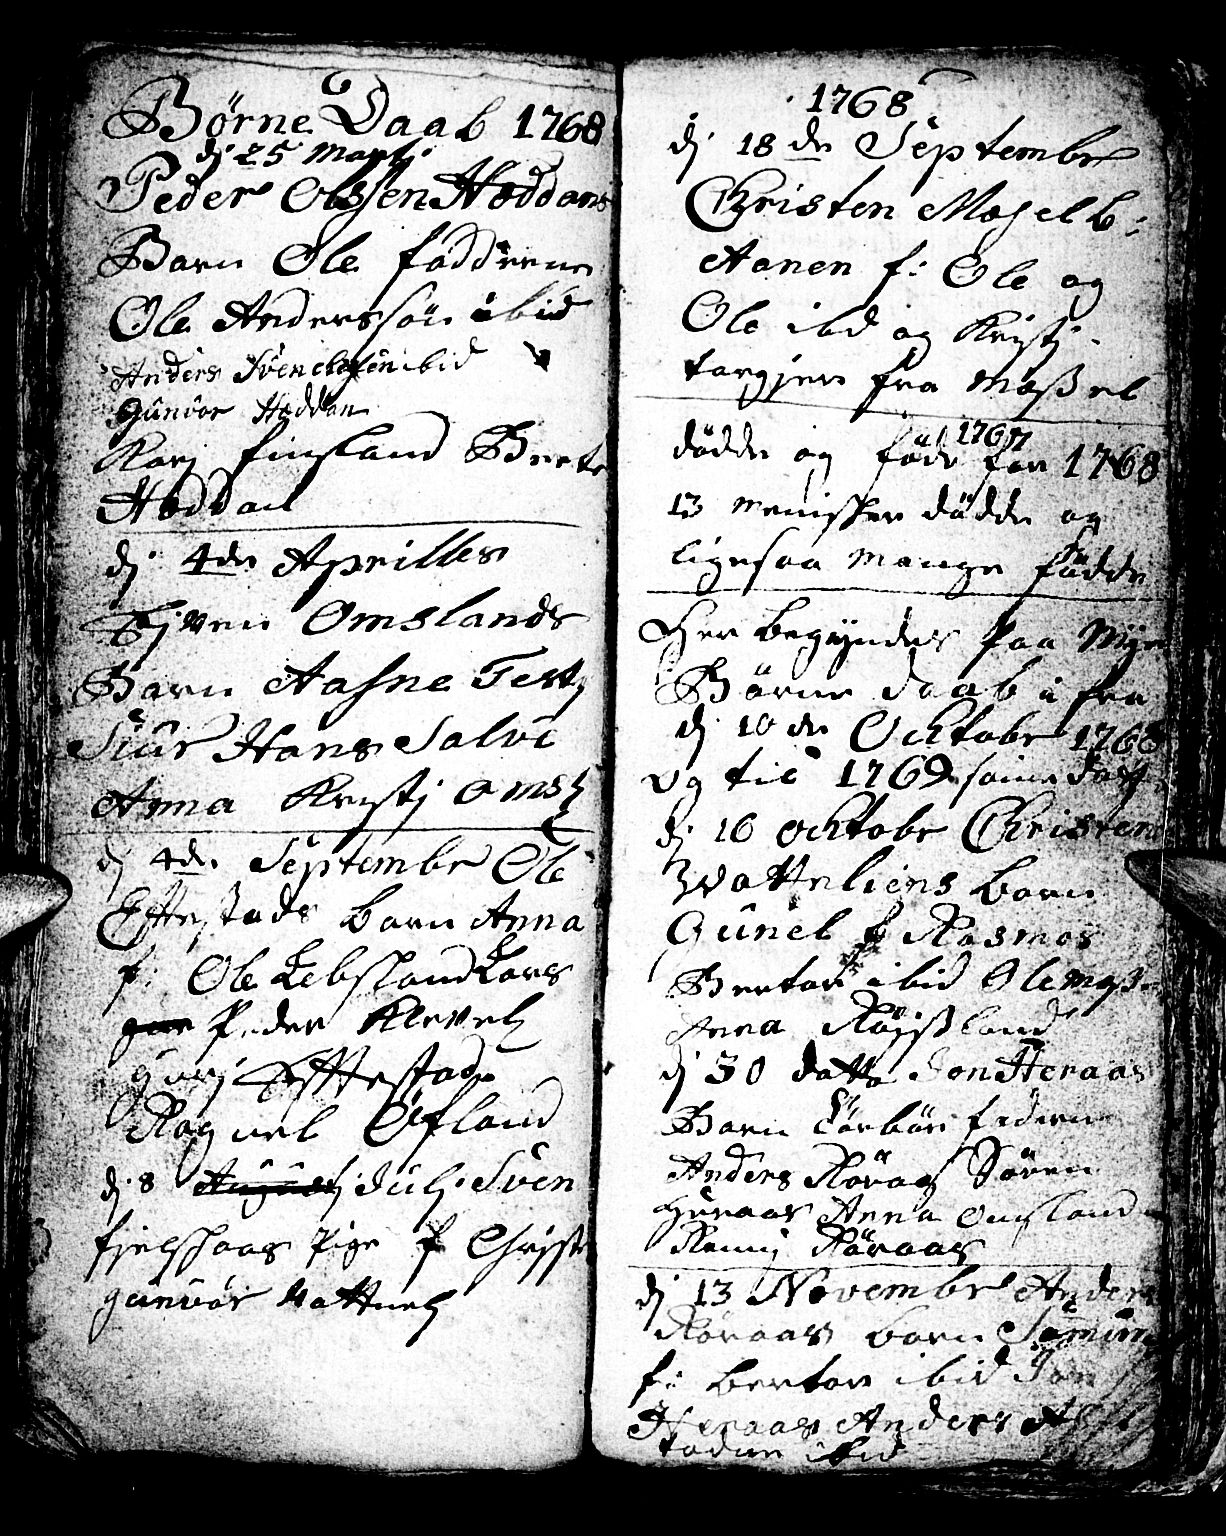 Børne Daab 1768
dj 25 Martj
Peder Olssen Høddans
Barn Ole faddrene
Ole Anderssøn ibid
Anders Svenclssen ibid
Gunvor Høddan
Karj finsland Berte
Høddan
dj 4de Aprilles
Tjven Omslands
Barn Aasne Test
Siur Hans Salve
Anna Kristj Omsl
dj 4de Septembr Ole
Eftestads barn Anna
f: Ole Lebsland Lars
Peder Klevel
gurj Eftestad
Ragnel Øfland
dj 8 Julj Sven
fjelshaas Pige f Christ
gunvør Vattnel
1768
dj 18 de Septembr
Christen Moselb:
Aanen f: Ole og
Ole ibd og Kristj
Torgjer fra Mossel
dødde og fødde for 1767 1768
13 Menisker dødde og
ligesaa mange fødde
Her begyndes paa Nye
Børne daab i fra
dj 10 de Octobr 1768
og til 1769 samme dag
dj 16 Octobr Christen
Wattneliens barn
Gunel f Rasmos
Berte ibid Ole
Anna Røissland
dj 30 datto Jon Heraas
Barn Torbør fadrene
Anders Røraas Søren
Heraas Anna Omsland
Røraas
dj 13 Novembr Anders
Røraas barn
f: berte ibid Jon
Heraas Anders
ibid